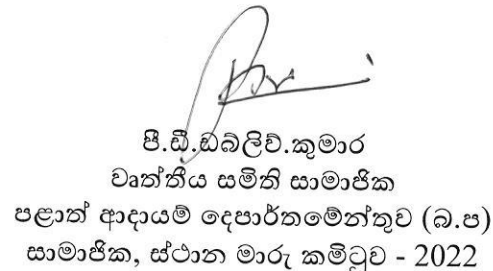 පී.ඩී.ඩබ්ලිව්.කුමාර
වෘත්තීය සමිති සාමාජික
පළාත් ආදායම් දෙපාර්තමේන්තුව (බ.ප)
සාමාජික, ස්ථාන මාරු කමිටුව - 2022